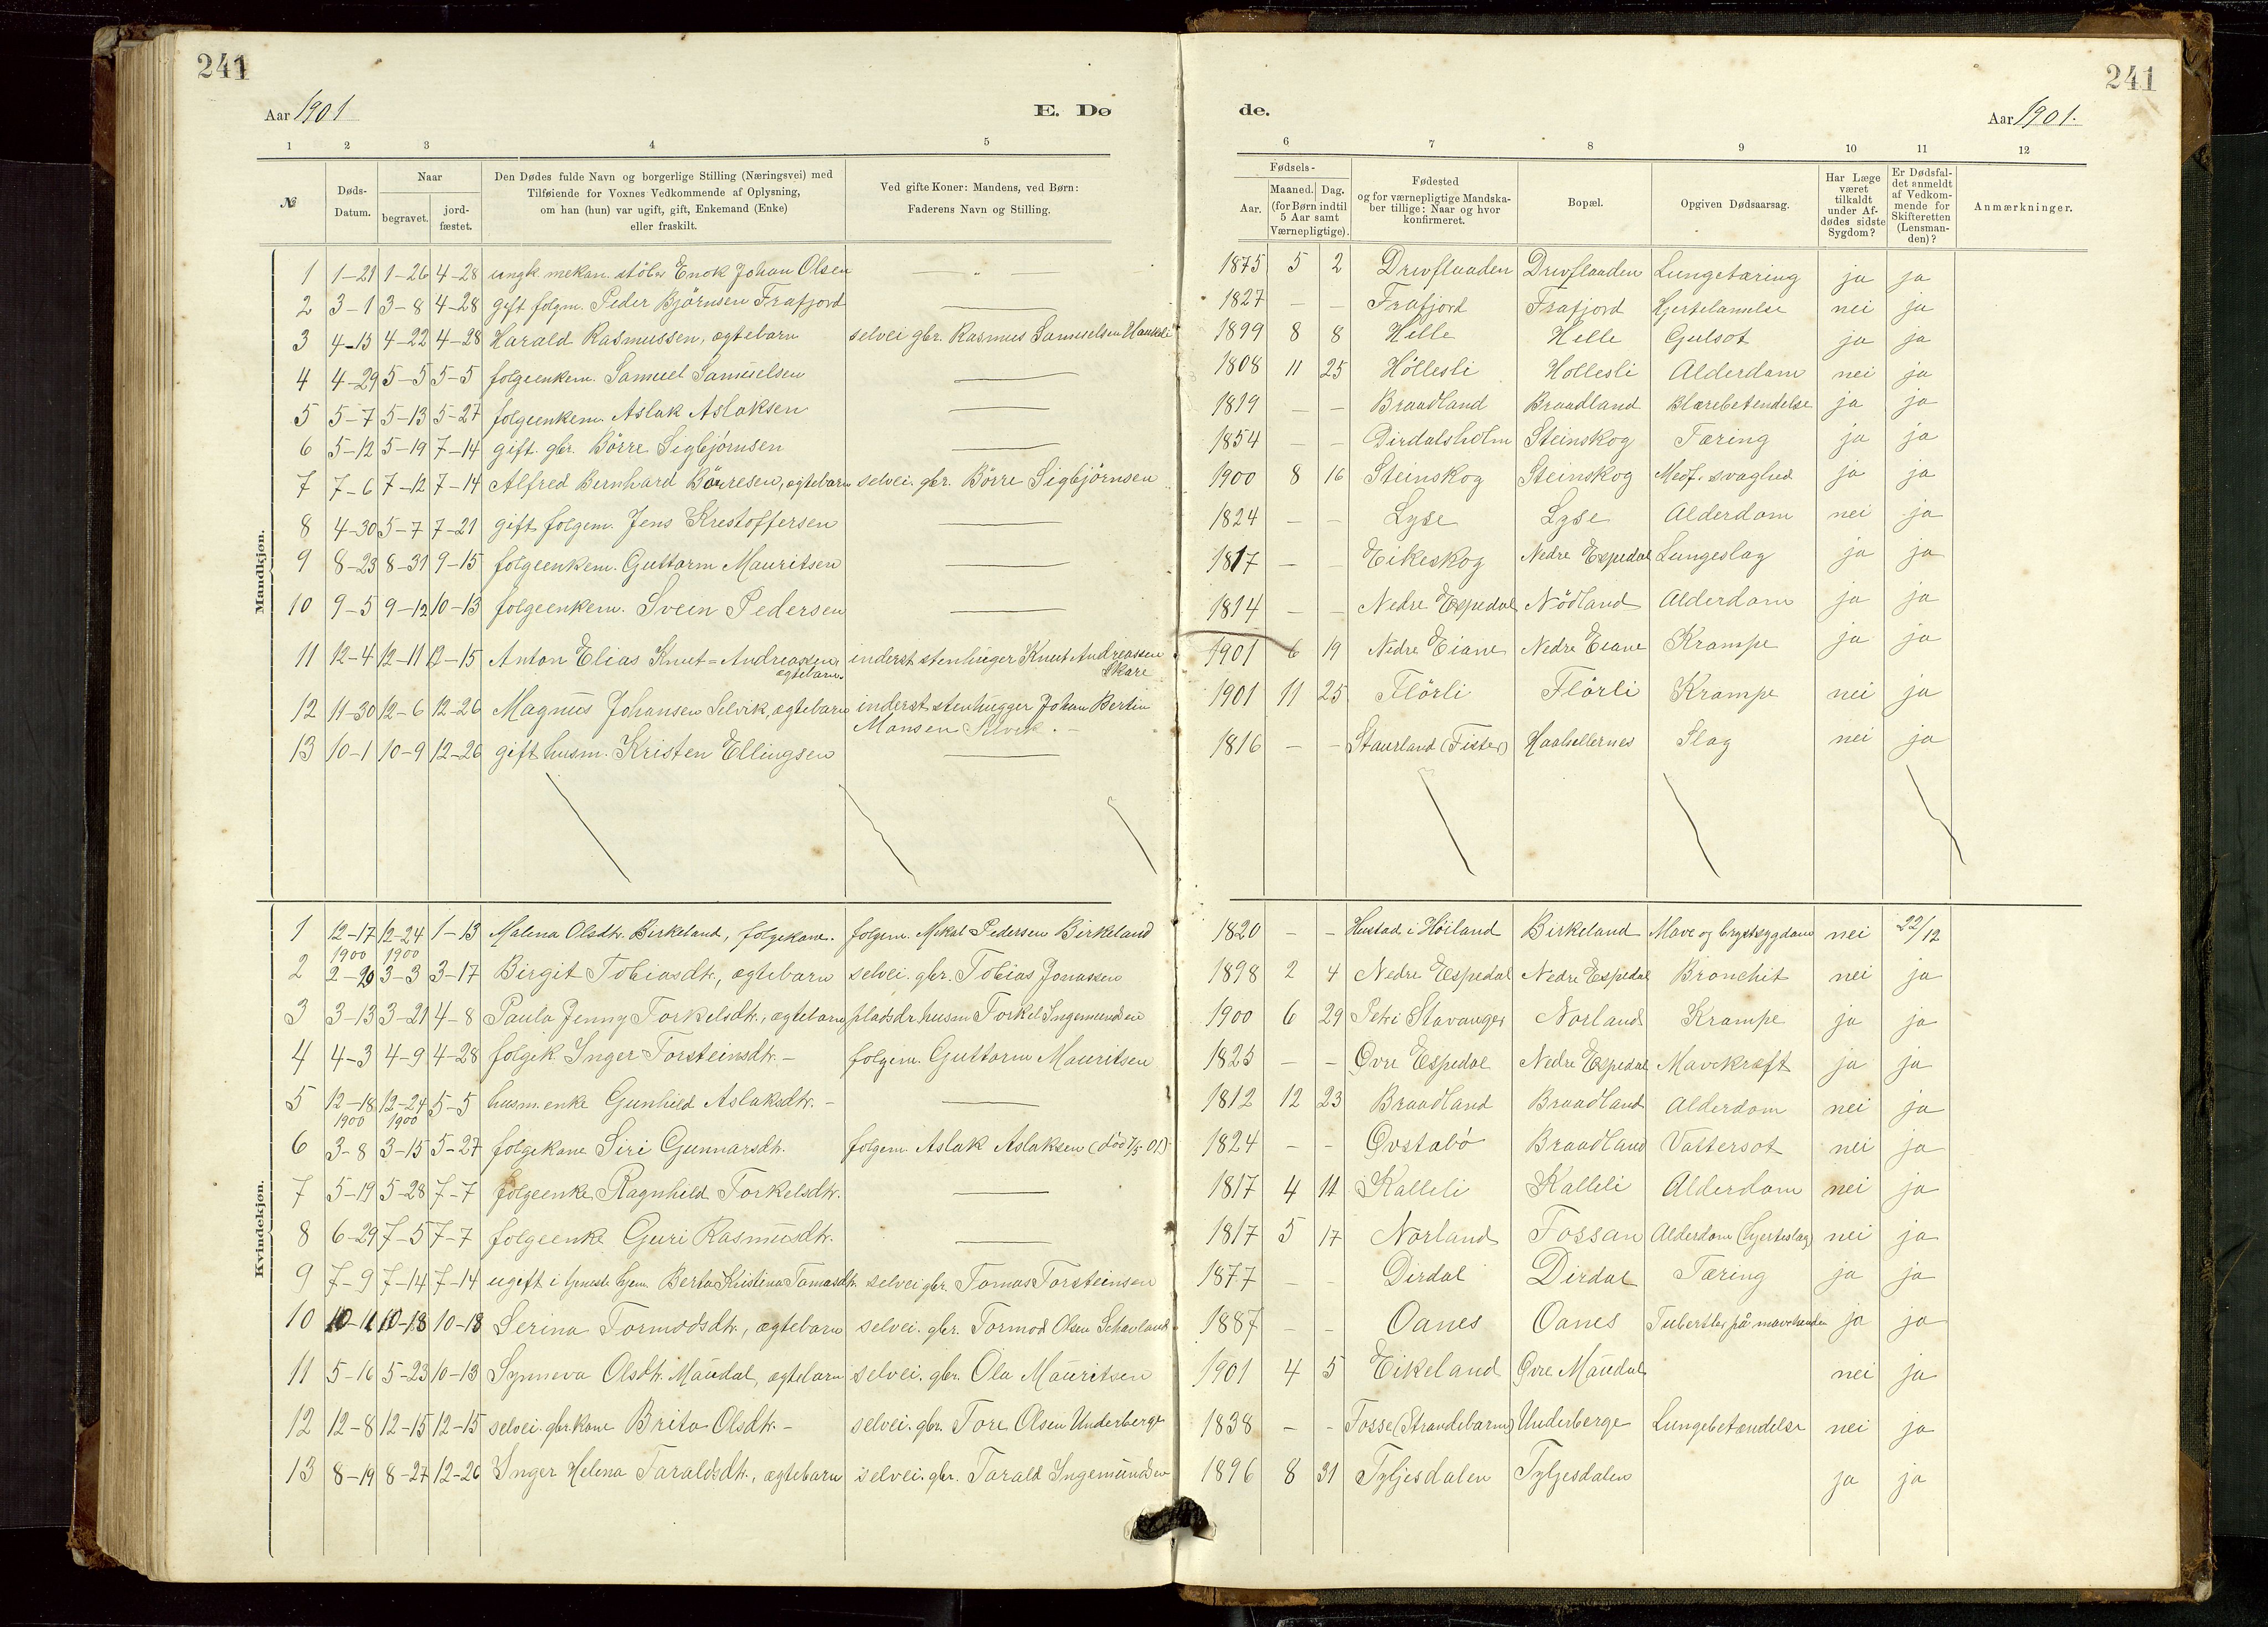 241
Aar 1901
E. Dø
1 2 3 4 5
№
Døds-Datum.
Naar
begravet.
jord-fæstet.
Den Dødes fulde Navn og borgerlige Stilling (Næringsvei) med
Tilføiende for Voxnes Vedkommende af Oplysning,
om han (hun) var ugift, gift, Enkemand (Enke)
eller fraskilt.
Ved gifte Koner: Mandens, ved Børn:
Faderens Navn og Stilling.
Mandkjøn.
1 1-21 1-26 4-28 ungk. mekan. Enok Johan Olsen — " —
2 3-1 3-8 4-28 gift folgm. Peder Björnsen Frafjord —
3 4-13 4-22 4-28 Harald Rasmussen, ægtebarn selvei gbr. Rasmus Samuelsen
4 4-29 5-5 5-5 folgeenkem. Samuel Samuelsen —
5 5-7 5-13 5-27 folgeenkem. Aslak Aslaksen —
6 5-12 5-19 7-14 gift. gbr. Börre Sigbjörnsen —
7 7-6 7-12 7-14 Alfred Bernhard Börresen, ægtebarn selvei. gbr. Börre Sigbjörnsen
8 4-30 5-7 7-21 gift folgem. Jens Krestoffersen —
9 8-23 8-31 9-15 folgeenkem. Guttorm Mauritsen —
10 9-5 9-12 10-13 folgeenkem. Svein Pedersen —
11 12-4 12-11 12-15 Anton Elias Knut-Andreassen inderst stenhuger Knut Andreassen
ægtebarn. Skare
12 11-30 12-6 12-26 Magnus Johansen Selvik, ægtebarn inderst stenhugger Johan Bertin
Monsen Selvik.-
13 10-1 10-9 12-26 gift husm. Kristen Ellingsen —
Kvindekjøn.
1 12-17 12-24 1-13 Malena Olsdtr. Birkeland, folgekone. folgem. Mikal Pedersen Birkeland
1900 1900
2 2-20 3-3 3-17 Birgit Tobiasdtr., ægtebarn selvei. gbr. Tobias Jonassen
3 3-13 3-21 4-8 Paula Jenny Torkelsdtr., ægtebarn pladsdr. husm Torkel Ingemundsen
4 4-3 4-9 4-28 folgek Inger Torsteinsdtr.- folgem. Guttorm Mauritsen
5 12-18 12-24 5-5 husm.enke Gunhild Aslaksdtr.- —
1900 1900
6 3-8 3-15 5-27 folgekone Siri Gunnarsdtr. folgem. Aslak Aslaksen (död 7/5 01)
7 5-19 5-28 7-7 folgeenke Ragnhild Torkelsdtr. —
8 6-29 7-5 7-7 folgeenke Guri Rasmusdtr. —
9 7-9 7-14 7-14 ugift i hjem. Berta Kristina Tomasdtr. selvei gbr. Tomas Torsteinsen
10 10-11 10-18 10-18 Serina Tormodsdtr., ægtebarn selvei. gbr. Tormod Olsen
11 5-16 5-23 10-13 Synneva Olsdtr. Maudal, ægtebarn selvei. gbr. Ola Mauritsen
12 12-8 12-15 12-15 selvei. gbr.kone Brita Olsdtr.- selvei. gbr. Tore Olsen Underberge
13 8-19 8-27 12-26 Inger Helena Taraldsdtr., ægtebarn selvei. gbr. Tarald Ingemundsen
241
de.
Aar 1901.
6 7 8 9 10 11 12
Fødsels-
Aar.
Maaned. Dag.
(for Børn indtil
5 Aar samt
Værnepligtige).
Fødested
og for værnepligtige Mandska-
ber tillige: Naar og hvor
konfirmeret.
Bopæl.
Opgiven Dødsaarsag.
Har Læge
været
tilkaldt
under Af-
dødes sidste
Sygdom?
Er Dødsfal-
det anmeldt
af Vedkom-
mende for
Skifteretten
(Lensman-
den)?
Anmærkninger.
1875 5 2 Drivflaaden Drivflaaden Lungetæring ja ja
1827 - - Frafjord Frafjord Hjertelamelse nei ja
1899 8 8 Helle Helle Gulsot ja ja
1808 11 25 Höllesli Hollesli Alderdom nei ja
1819 - - Braadland Braadland Blærebetendelse ja ja
1854 - - Dirdalsholm Steinskog Tæring ja ja
1900 8 16 Steinskog Steinskog Medf. svaghed ja ja
1824 - - Lyse Lyse Alderdom nei ja
1817 - - Eikeskog Nedre Espedal Lungeslag ja ja
1814 - - Nedre Espedal Nödland Alderdom ja ja
1901 6 19 Nedre Eiane Nedre Eiane Krampe ja ja
1901 11 25 Flörli Flörli Krampe nei ja
1816 - - Staurland (Fister) Haahellernes Slag nei ja
1820 - - Hustad i Höiland Birkeland Mave og brystsygdom nei 22/12
1898 2 4 Nedre Espedal Nedre Espedal Bronchit nei ja
1900 6 29 Petri Stavanger Norland Krampe ja ja
1825 - - Övre Espedal Nedre Espedal Mavekræft ja ja
1812 12 23 Braadland Braadland Alderdom nei ja
1824 - - Övstabö Braadland Vattersot nei ja
1817 4 11 Kalleli Kalleli Alderdom nei ja
1817 5 17 Norland Fossan Alderdom (hjerteslag) nei ja
1877 - - Dirdal Dirdal Tæring ja ja
1887 - - Oanes Oanes på ja ja
1901 4 5 Eikeland Övre Maudal nei ja
1838 - - Fosse (Strandebarm) Underberge Lungebetændelse nei ja
1896 8 31 Tyljesdalen Tyljesdalen ja ja